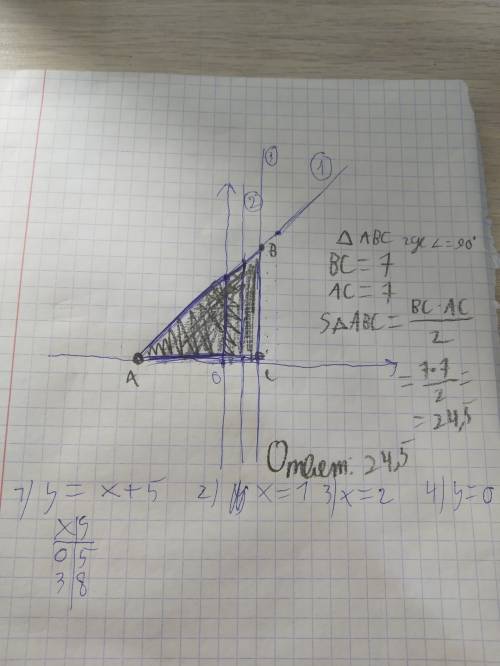 ③
①
②
B
△ ABC где ∠=90°
BC = 7
AC = 7
S△ABC = BC·AC / 2
= 7·7 / 2 =
= 24,5
A
0
C
Ответ: 24,5
1) y = x+5 2) x=1 3) x=2 4) y=0
x | y
0 | 5
3 | 8